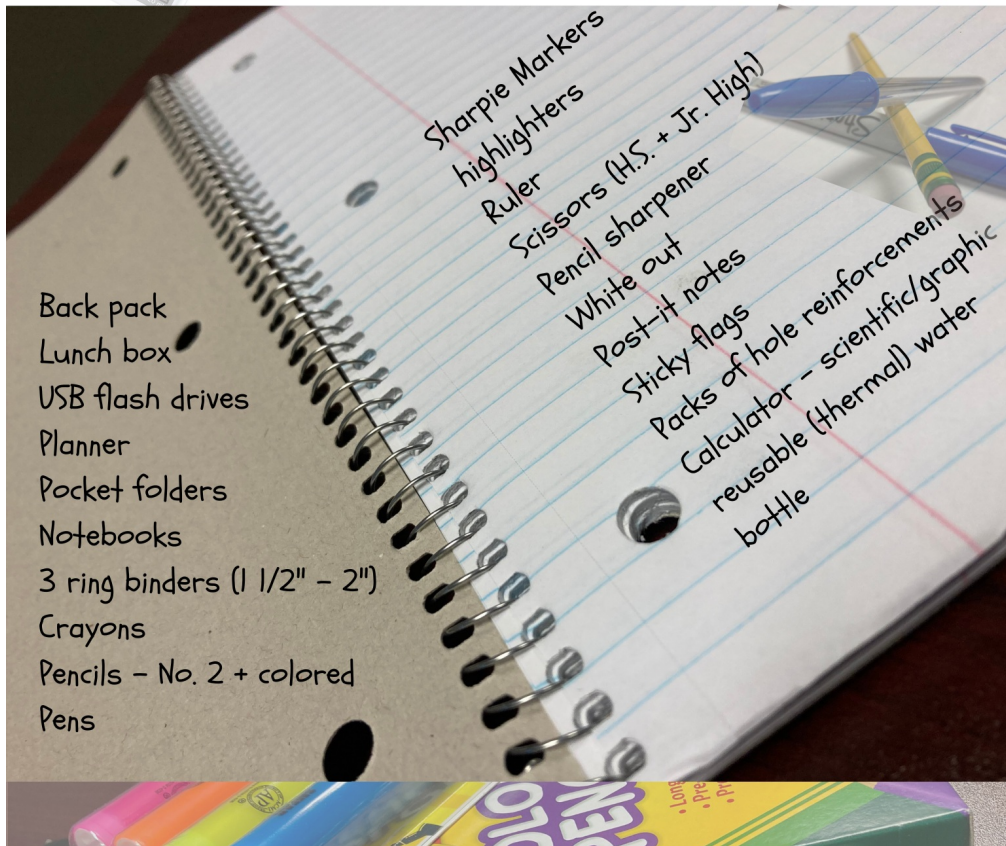 Back pack
Lunch box
USB flash drives
Planner
Pocket folders
Notebooks
3 ring binders (1 1/2" - 2")
Crayons
Pencils - No. 2 + colored
Pens
Sharpie Markers
highlighters
Ruler
Scissors (H.S. + Jr. High)
Pencil sharpener
White out
Post-it notes
Sticky flags
Packs of hole reinforcements
Calculator - scientific/graphic
reusable (thermal) water
bottle
AP